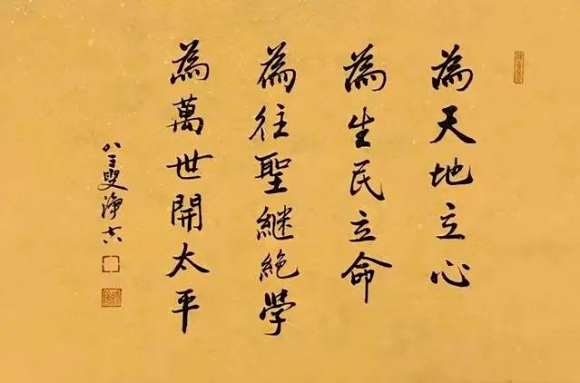 為天地立心
為生民立命
為往聖繼絕學
為萬世開太平
八三叟淨空